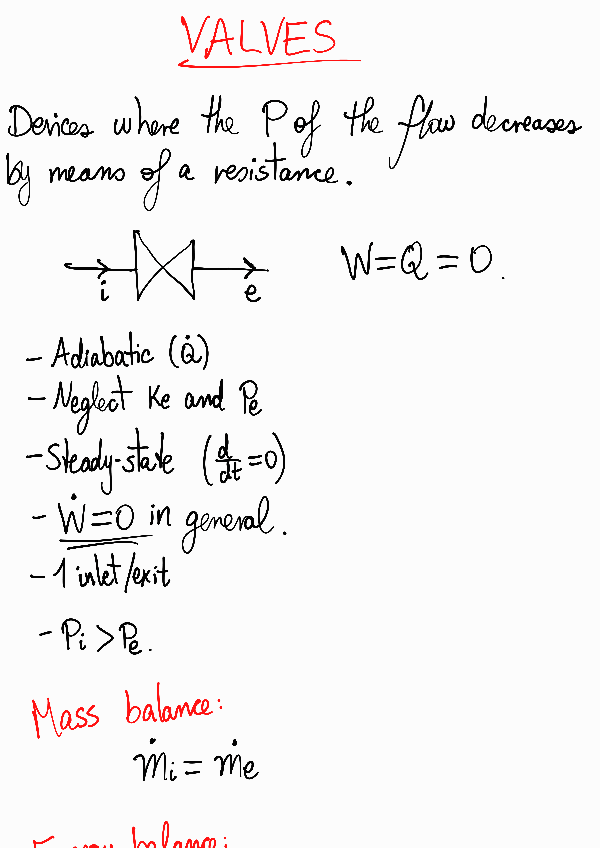 VALVES
Devices where the P of the flow decreases
by means of a resistance.
W=Q=0.
i e
- Adiabatic (Q̇)
- Neglect Ke and Pe
- Steady-state (d/dt=0)
- Ẇ=0 in general.
- 1 inlet/exit
- Pi > Pe.
Mass balance:
ṁi = ṁe
balance: